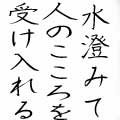 水澄みて
人のこころを
受け入れる